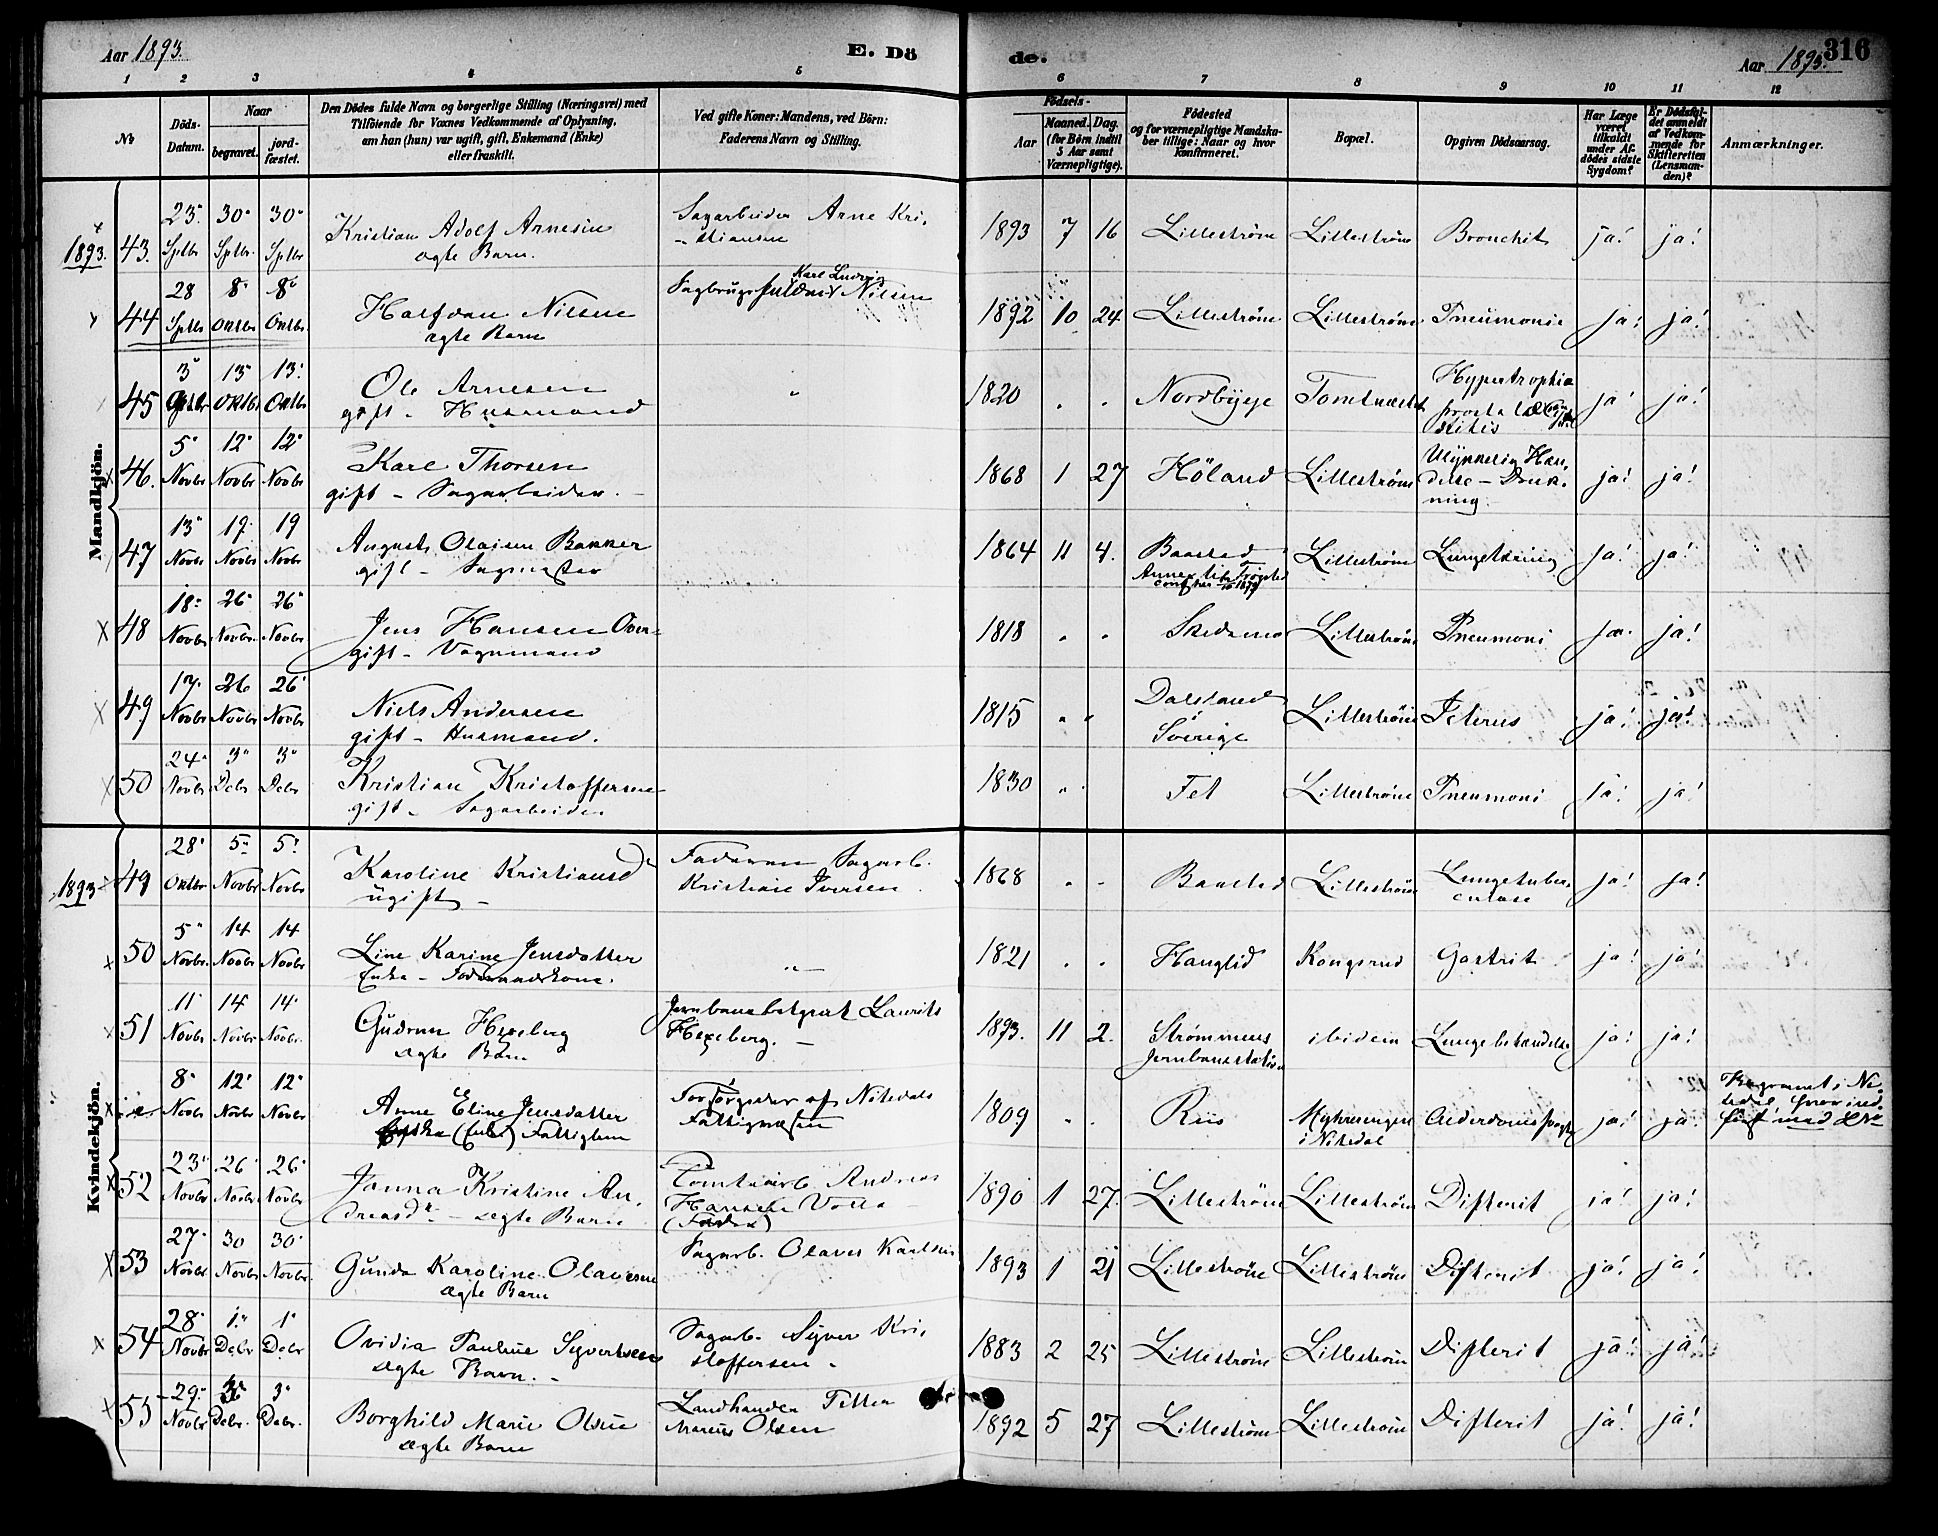 Aar 1893.
E. Dö
de.
Aar 1893.
316
1 2 3 4 5 6 7 8 9 10 11 12
No
Döds-
Datum.
Naar
begravet.
jord-
fæstet.
Den Dödes fulde Navn og borgerlige Stilling (Næringsvei) med
Tilföiende for Voxnes Vedkommende af Oplysning,
om han (hun) var ugift, gift, Enkemand (Enke)
eller fraskilt.
Ved gifte Koner: Mandens, ved Börn:
Faderens Navn og Stilling.
Födsels-
Aar
Maaned. Dag.
(for Börn indtil
5 Aar samt
Værnepligtige).
Födested
og for værnepligtige Mandska-
ber tillige: Naar og hvor
konfirmeret.
Bopæl.
Opgiven Dödsaarsag.
Har Læge
været
tilkaldt
under Af-
dödes sidste
Sygdom?
Er Dödsfal-
det anmeldt
af Vedkom-
mende for
Skifteretten
(Lensman-
den)?
Anmærkninger.
Mandkjön.
1893. 43. 23. Sptbr 30 Sptbr. 30 Sptbr
Kristian Adolf Arnesen
ægte Barn.
Sagarbeider Arne Kri-
stiansen
1893 7 16 Lillestrøm Lillestrøm Bronchit ja! ja!
44 28 Sptbr 8 Oktbr 8 Oktbr
Halfdan Nilsen
ægte Barn
Karl Ludvig
Nilsen
1892 10 24 Lillestrøm Lillestrøm Pneumonie ja! ja!
45 3 13 Oktbr 13. Oktbr
Ole Arnesen
gift - Husmand
1820 Nordbyeje Hypertrophia
prostatae
ja! ja!
46. 5 Novbr 12 Novbr 12 Novbr
Karl Thorsen
gift - Sagarbeider.
1868 1 27 Höland Lillestrøm Ulykkelig Hæn-
delse - Druk-
ning.
ja! ja!
47 13 Novbr 19 Novbr 19 Novbr
August Olaisen Bakker
gift - Sagmester
1864 11 4. Baastad
Annex til Trøgstad
Lillestrøm Lungetæring ja! ja!
48 18 Novbr 26 Novbr. 26 Novbr
Jens Hansen Over-
gift - Vognmand
1818 Skedsmo Lillestrøm Pneumoni ja. ja!
49 17. Novbr 26 Novbr 26 Novbr
Niels Andersen
gift - Husmand.
1815 Dalsland
Sverige
Lillestrøm Icterus ja! ja!
50 24 Novbr 3 Debr 3 Debr
Kristian Kristoffersen
gift - Sagarbeider
1830 Fet Lillestrøm Pneumoni ja! ja!
Kvindekjön.
1893 49 28 Oktbr 5 Novbr 5 Novbr
Karoline Kristiansd
ugift -
Faderen Sagarb.
Kristian Iversen
1868 Baastad Lillestrøm Lungetuber-
culose
ja! ja!
50 5 Novbr. 14 Novbr 14 Novbr
Line Karine Jensdatter
Enke - Føderaadskone.
1821 Hauglid Kongsrud Gastrit ja! ja!
51 11 Novbr 14 Novbr 14 Novbr.
Gudrun Hexeberg
ægte Barn
Laurits
Hexeberg. -
1893. 11 2. Strømmens
Jernbanestation
ibidem ja! ja!
8 Novbr 12 Novbr 12 Novbr
Anne Eline Jensdatter
(Enke) Fattiglem
Forsørgedes af Nitedals
Fattigvæsen
1809 Riis
i Nitedal
ja! ja!
52 23 Novbr 26 Novbr 26 Novbr
Janna Kristine An-
dreasdr. - ægte Barn
Tomtearb. Andreas
Hansen Volla
(Fader)
1890 1 27. Lillestrøm Lillestrøm Difterit ja! ja!
53 27 Novbr 30 Novbr 30 Novbr.
Gunda Karoline Olavesen
ægte Barn
Sagarb. Olaves Karlsen
1893 1 21 Lillestrøm Lillestrøm Difterit ja! ja!
54 28 Novbr 1 Debr 1 Debr
Ovidia Pauline Syvertsen
ægte Barn. -
Sagarb. Syver Kri-
stoffersen
1883 2 25 Lillestrøm Lillestrøm Difterit ja! ja!
55 29 Novbr 3 Debr. 3 Debr.
Borghild Marie Olsen
ægte Barn
Landhandler
Marius Olsen
1892 5 27 Lillestrøm Lillestrøm Difterit ja! ja!